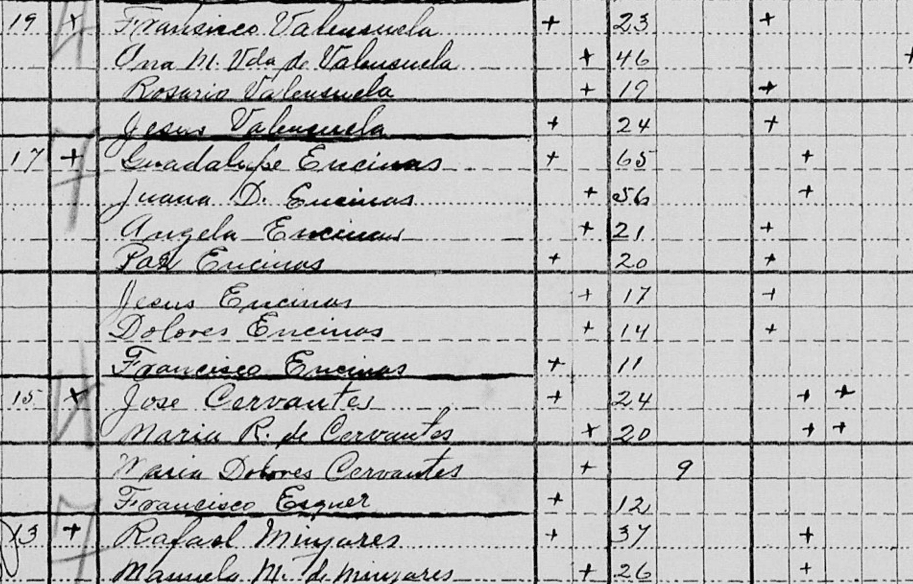 19 + Francisco Valensuela + 23 +
Ana M. Vda de Valensuela + 46 +
Rosario Valensuela + 19 +
Jesus Valensuela + 24 +
17 + Guadalupe Encinas + 65 +
Juana D. Encinas + 56 +
Angela Encinas + 21 +
Paz Encinas + 20 +
Jesus Encinas + 17 +
Dolores Encinas + 14 +
Francisco Encinas + 11
15 + Jose Cervantes + 24 + +
Maria R. de Cervantes + 20 + +
Maria Dolores Cervantes + 9
Francisco Esquer + 12
13 + Rafael Minjares + 37 +
Manuela M. de Minjares + 26 +